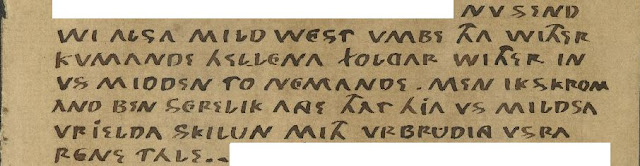 NV SEND
WI ALSA MILD WEST VMBE THA WITHER
KVMANDE HELLENA FOLGAR WITHER IN
VS MIDDEN TO NEMANDE. MEN IK SKROM
AND BEN SERELIK ANGE THAT HJA VS MILDSA
VRJELDA SKILUN MITH VRBRUDJA VSRA
RENE TALE..